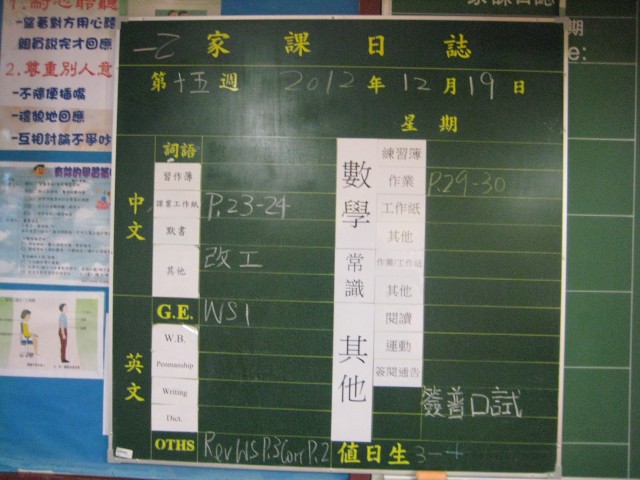 1.耐心聆聽
－望著對方用心聽
組員說完才回應
2.尊重別人意
－不隨便插嘴
－禮貌地回應
－互相討論不爭吵
一乙 家課日誌
第十五週 2012年12月19日
星期
中文
詞語
習作簿
課業工作紙 P.23-24
默書
其他 改工
英文
G.E. WS1
W.B.
Penmanship
Writing
Dict.
OTHS Rev WS P.3 Corr P.2
數學
練習簿
作業 P.29-30
工作紙
其他
常識
作業/工作紙
其他
其他
閱讀
運動
簽閱通告
簽普口試
值日生 3-4
家課日誌
期
e: